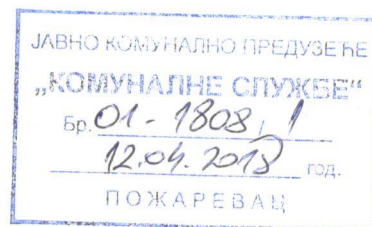 ЈАВНО КОМУНАЛНО ПРЕДУЗЕЋЕ
„КОМУНАЛНЕ СЛУЖБЕ“
Бр. 01-1808/1
12.04.2018 год.
ПОЖАРЕВАЦ